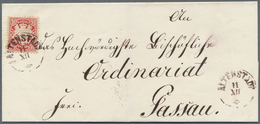 An
Das Hochwürdigste Bischöfliche
Ordinariat
Frei.
Passau.
ALTENSTADT
11
XII
ALTENSTADT
11
XII